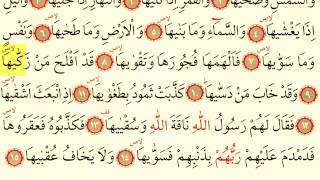 وَالشَّمْسِ وَضُحٰیهَا وَالْقَمَرِ اِذَا تَلٰیهَا وَالنَّهَارِ اِذَا جَلّٰیهَا وَالَّیْلِ
اِذَا یَغْشٰیهَا ٤ وَالسَّمَٓاءِ وَمَا بَنٰیهَا ٥ وَالْاَرْضِ وَمَا طَحٰیهَا ٦ وَنَفْسٍ
وَمَا سَوّٰیهَا ٧ فَاَلْهَمَهَا فُجُورَهَا وَتَقْوٰیهَا ٨ قَدْ اَفْلَحَ مَنْ زَكّٰیهَا
٩ وَقَدْ خَابَ مَنْ دَسّٰیهَا ١٠ كَذَّبَتْ ثَمُودُ بِطَغْوٰیهَا ١١ اِذِ انْبَعَثَ اَشْقٰیهَا
١٢ فَقَالَ لَهُمْ رَسُولُ اللّٰهِ نَاقَةَ اللّٰهِ وَسُقْیٰیهَا ١٣ فَكَذَّبُوهُ فَعَقَرُوهَا
فَدَمْدَمَ عَلَیْهِمْ رَبُّهُمْ بِذَنْبِهِمْ فَسَوّٰیهَا ١٤ وَلَا یَخَافُ عُقْبٰیهَا ١٥